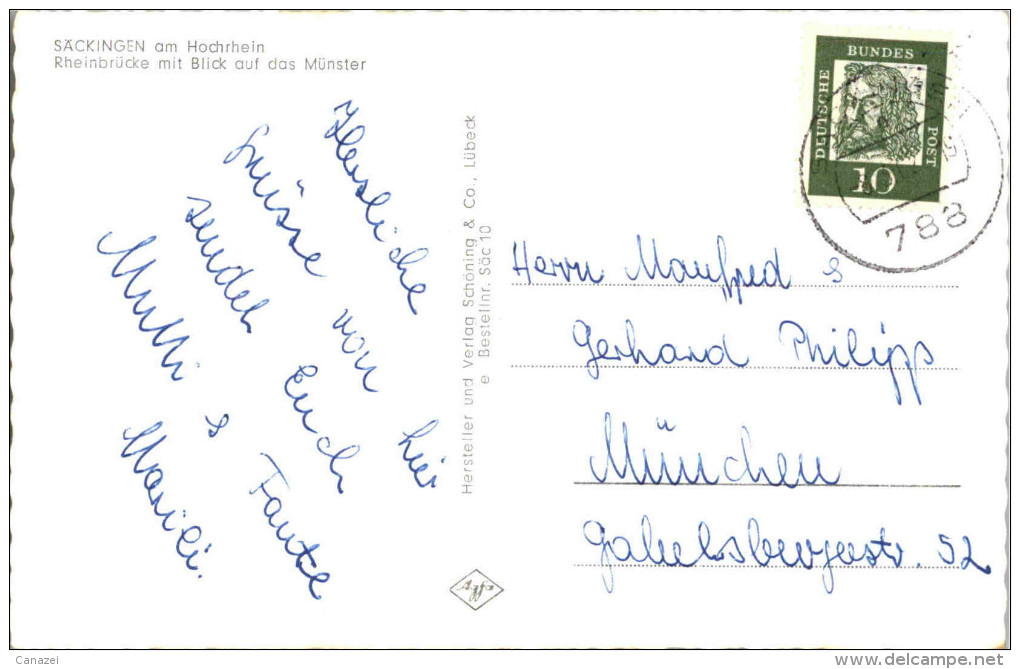 SÄCKINGEN am Hochrhein
Rheinbrücke mit Blick auf das Münster
Herzliche
Grüsse von hier
senden Euch
Mutti & Tante
Marili.
Hersteller und Verlag Schöning & Co., Lübeck
e Bestellnr. Säc 10
DEUTSCHE
BUNDES
POST
10
788
Herrn Manfred &
Gerhard Philipp
München
Gabelsbergerstr. 52
Agfa
Canazei
www.delcampe.net